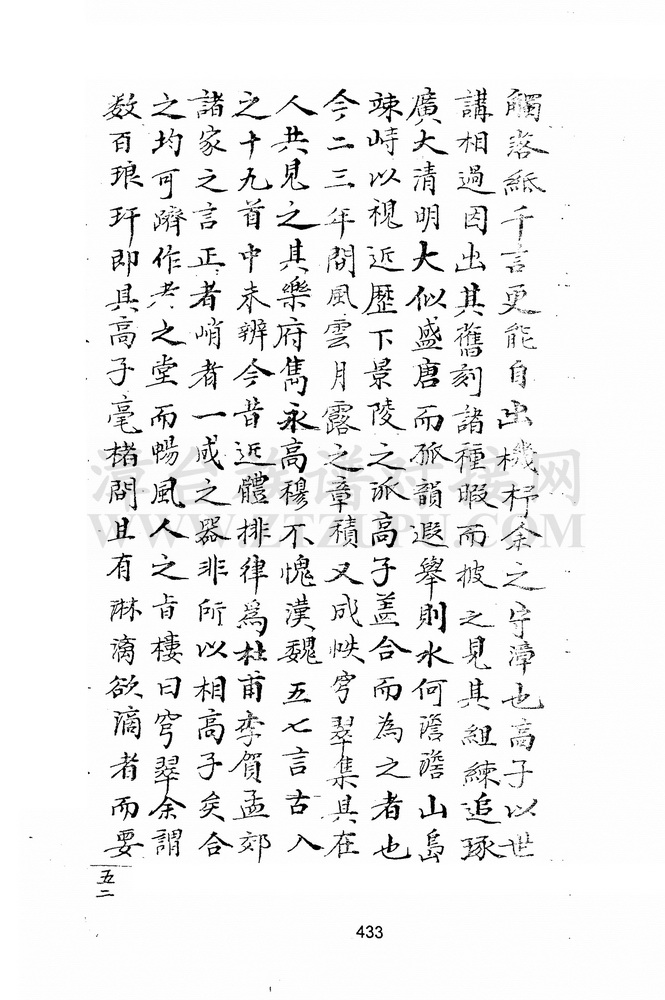 觸落紙千言更能自出機杼余之守漳也高子以世
講相過因出其舊刻諸種暇而披之見其組練追琢
廣大清明大似盛唐而孤韻遐舉則水何澹澹山島
竦峙以視近歷下景陵之派高子盖合而為之者也
今二三年間風雲月露之章積又成帙穹翠集具在
人共見之其樂府雋永高穆不愧漢魏五七言古入
之十九首中未辨今昔近體排律爲杜甫李賀孟郊
諸家之言正者峭者一成之器非所以相高子矣合
之均可躋作者之堂而暢風人之旨樓曰穹翠余謂
数百琅玕即具高子毫楮間且有淋漓欲滴者而要
五二
433
漳台族谱对接网
WWW.ZTZUPU.COM